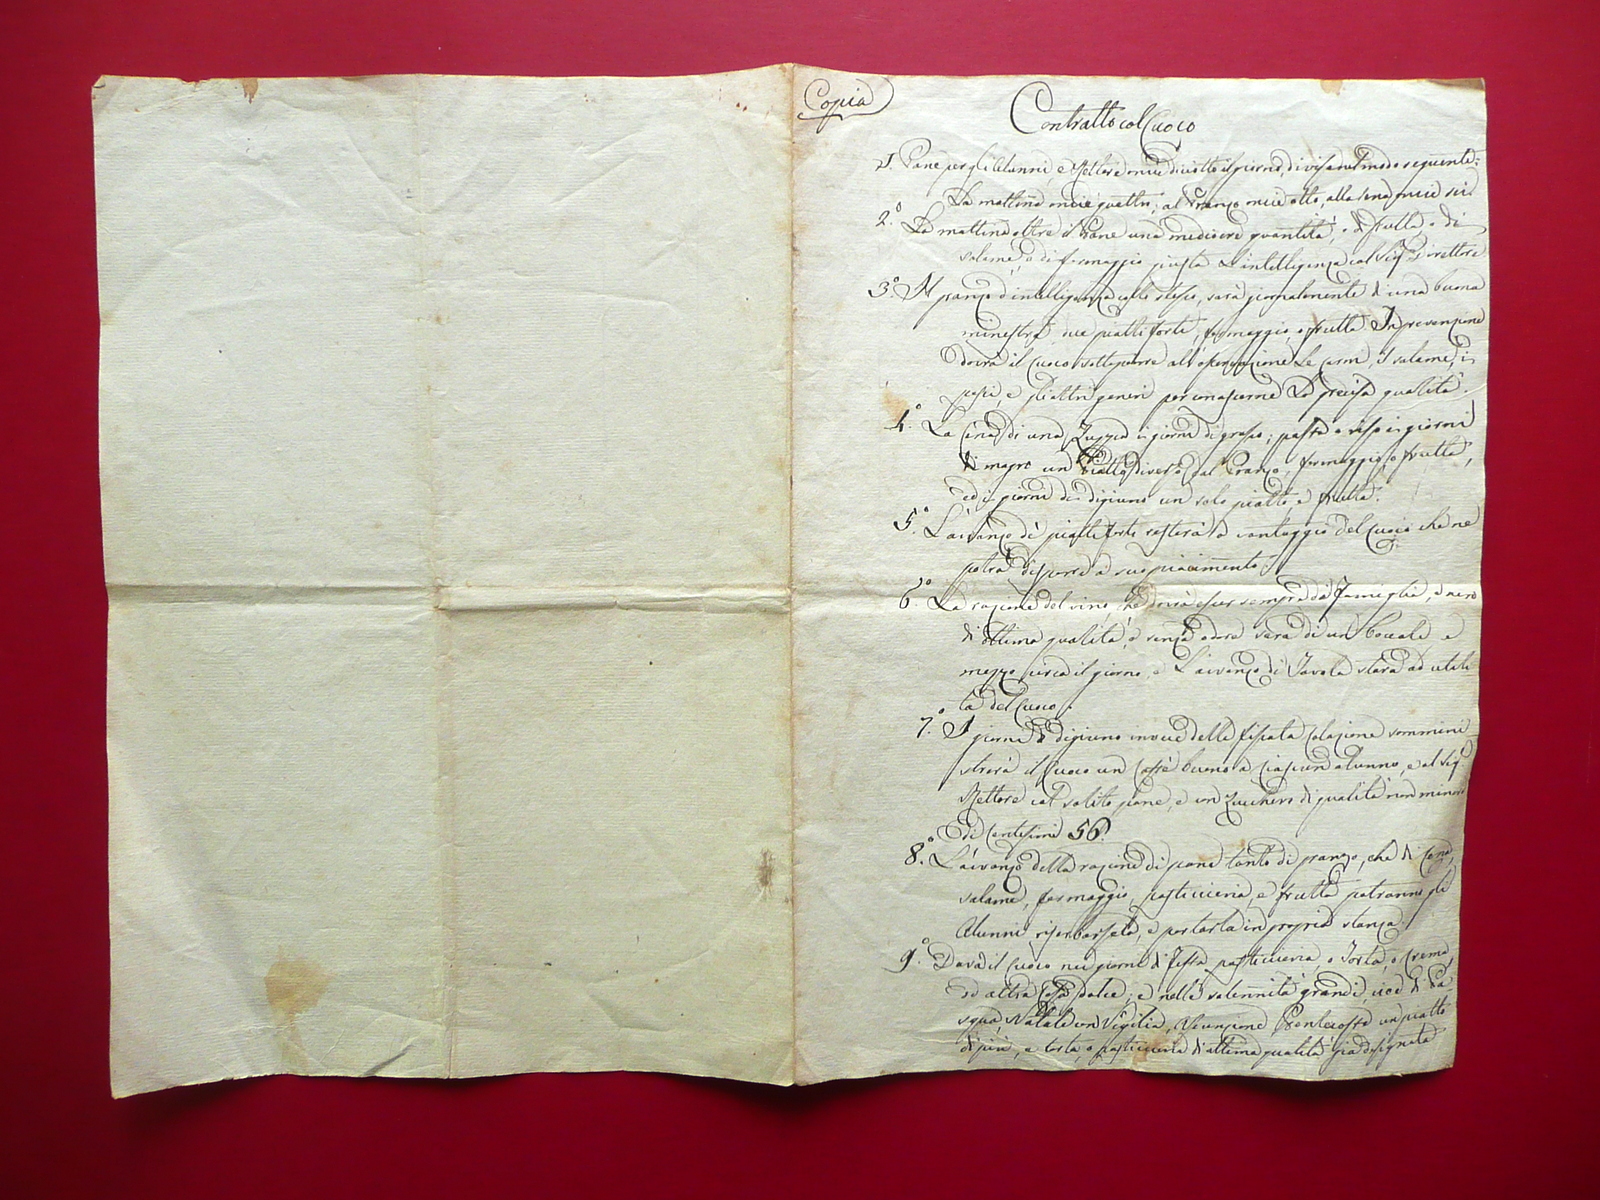 Copia
Contratto col Cuoco
1. Pane per gli Alunni e Rettore oncie diciotto il giorno, divisa nel modo seguente:
La mattina oncie quattro; al Pranzo oncie otto, alla Cena oncie sei.
2.° La mattina oltre il Pane una mediocre quantità, o di frutta, o di
salame, o di formaggio giusta l'intelligenza col Sig. Direttore
3.° Il pranzo d'intelligenza collo stesso, sarà giornalmente di una buona
minestra, due piatti forti, formaggio, o frutta. In prevenzione
dovrà il Cuoco sottoporre all'osservazione le Carni, i salami, i
pesci, e gli altri generi per conoscerne la precisa qualità.
4.° La Cena di una Zuppa i giorni di grasso; pasta o riso i giorni
di magro un piatto diverso dal Pranzo, formaggio, o frutta,
ed i giorni di digiuno un solo piatto e frutta.
5.° L'avanzo de' piatti forti resterà a vantaggio del Cuoco che ne
potrà disporre a suo piacimento.
6.° La razione del vino, che dovrà esser sempre da Famiglia, e nero
di ottima qualità, e senza odore sarà di un boccale e
mezzo circa il giorno, e l'avanzo di Tavola starà ad utili
tà del Cuoco.
7.° I giorni di digiuno invece della fissata Colazione sommini
strerà il Cuoco un Caffè buono a Ciascun alunno, e al Sig.
Rettore col solito pane, e un Zucchero di qualità non minore
di Centesimi 56.
8.° L'avanzo della razione di pane tanto di pranzo, che di Cena,
salame, formaggio, pasticceria, e frutta potranno gli
Alunni riserbarsela, e portarla in propria stanza.
9.° Darà il Cuoco nei giorni di Festa pasticceria o Torta, o Crema,
od altra Cosa dolce; e nelle solennità grandi, cioè di Pa-
squa, Natale con Vigilia, Pentecoste un piatto
di più, e torta, o pasticceria di ottima qualità già designata